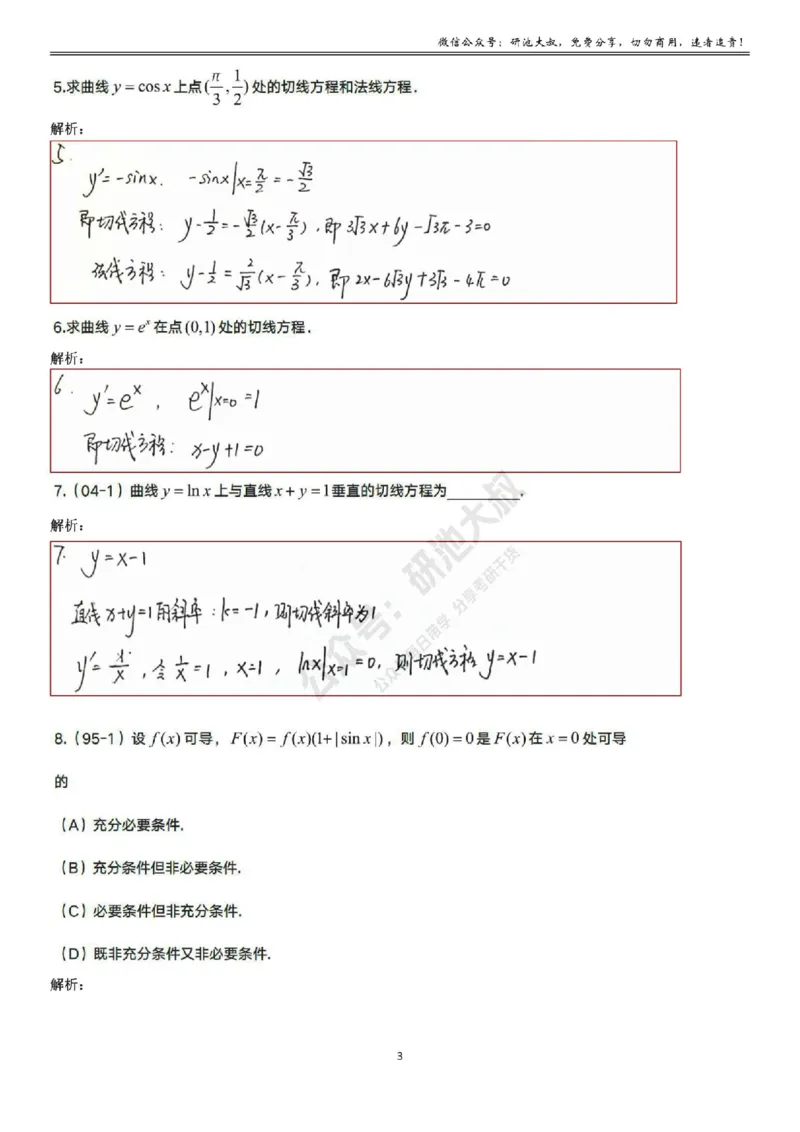 微信公众号：研池大叔，免费分享，切勿商用，违者追责！
5.求曲线 y = cos x 上点 (π/3, 1/2) 处的切线方程和法线方程.
解析：
5.
y' = -sinx. -sinx|x=π/2 = -√3/2
即切线方程： y-1/2 = -√3/2 (x-π/3)，即 3√3x+6y-√3π-3=0
法线方程： y-1/2 = 2/√3 (x-π/3)，即 2x-6√3y+3√3-4π=0
6.求曲线 y = eˣ 在点 (0,1) 处的切线方程.
解析：
6. y' = eˣ ， eˣ|x=0 = 1
即切线方程： x-y+1=0
7.（04-1）曲线 y = ln x 上与直线 x + y = 1 垂直的切线方程为________.
解析：
7. y = x-1
直线 x+y=1 的斜率：k=-1，则切线斜率为1
y' = 1/x ，令 1/x = 1 ，x=1 ， lnx|x=1 = 0，则切线方程 y=x-1
公众号：研池大叔
公众号每日带学 分享考研干货
8.（95-1）设 f(x) 可导，F(x) = f(x)(1+|sin x|)，则 f(0) = 0 是 F(x) 在 x = 0 处可导
的
（A）充分必要条件.
（B）充分条件但非必要条件.
（C）必要条件但非充分条件.
（D）既非充分条件又非必要条件.
解析：
3